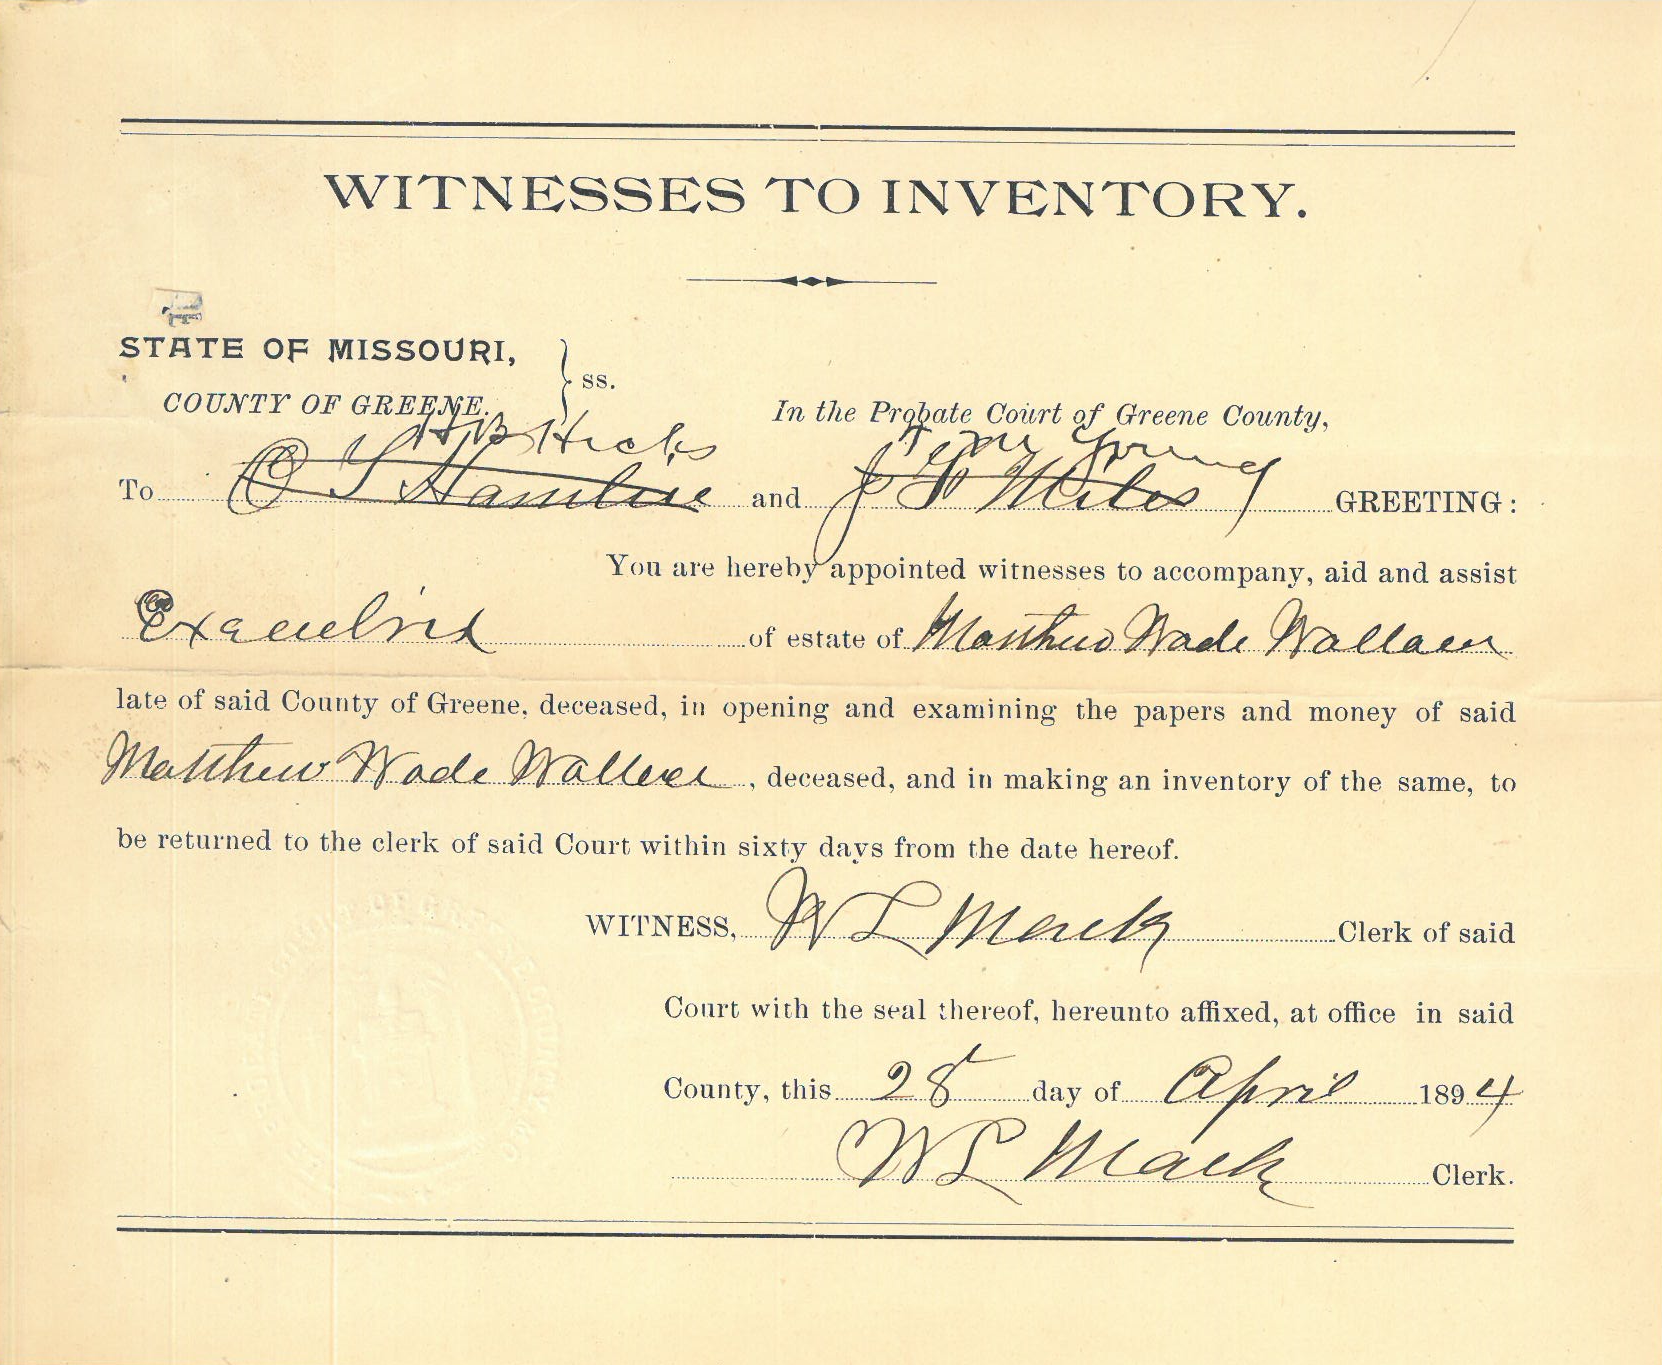 WITNESSES TO INVENTORY.
STATE OF MISSOURI,
COUNTY OF GREENE. } ss.
In the Probate Court of Greene County,
H B Hicks Young
To O S Hamline and J F Miles GREETING:
You are hereby appointed witnesses to accompany, aid and assist
Executrix of estate of Matthew Wade Wallace
late of said County of Greene, deceased, in opening and examining the papers and money of said
Matthew Wade Wallace, deceased, and in making an inventory of the same, to
be returned to the clerk of said Court within sixty days from the date hereof.
WITNESS, W L Mack Clerk of said
Court with the seal thereof, hereunto affixed, at office in said
County, this 28 day of April 1894
W L Mack Clerk.